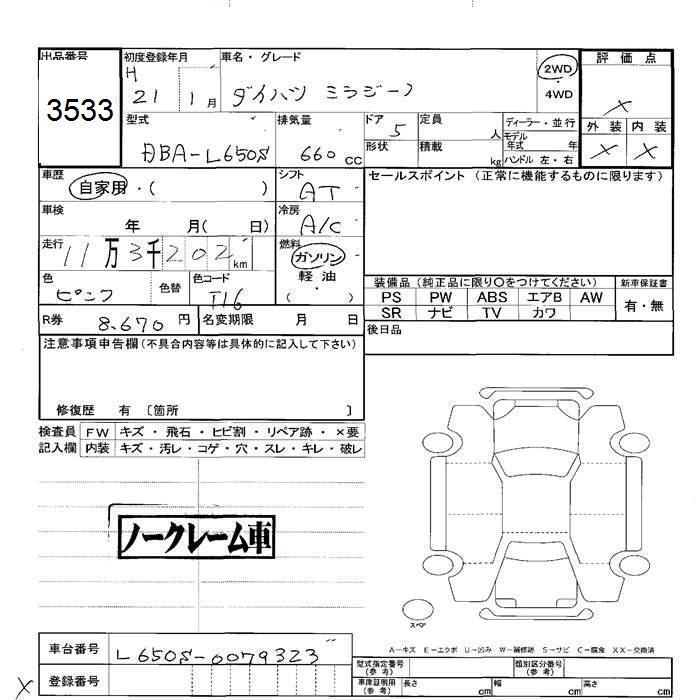 出品番号 初度登録年月 車名・グレード 評価点
3533 H 21 1月 ダイハツ ミラジーノ 2WD ・ 4WD ×
型式 排気量 ドア 定員 ディーラー・並行 外装 内装
DBA-L650S 660 CC 5 人 モデル年式 年 × ×
形状 積載 kg ハンドル 左・右
車歴 シフト セールスポイント (正常に機能するものに限ります)
自家用 ・( ) AT
車検 冷房
年 月( 日) A/C
走行 燃料
11万3千202km ガソリン
軽油
色 色替 色コード ・ 装備品 (純正品に限り○をつけてください) 新車保証書
ピンク T16 ( ) PS PW ABS エアB AW 有・無
SR ナビ TV カワ
R券 8.670 円 名変期限 月 日 後日品
注意事項申告欄(不具合内容等は具体的に記入して下さい)
修復歴 有 〔箇所 〕
検査員 FW キズ・飛石・ヒビ割・リペア跡・×要
記入欄 内装 キズ・汚レ・コゲ・穴・スレ・キレ・破レ
ノークレーム車
スペア
A-キズ E-エクボ U-凹み W-補修跡 S-サビ C-腐食 XX-交換済
車台番号 L650S-0079323
型式指定番号(参考) 類別区分番号(参考)
登録番号
車庫証明用(参考) 長さ cm 幅 cm 高さ cm
×